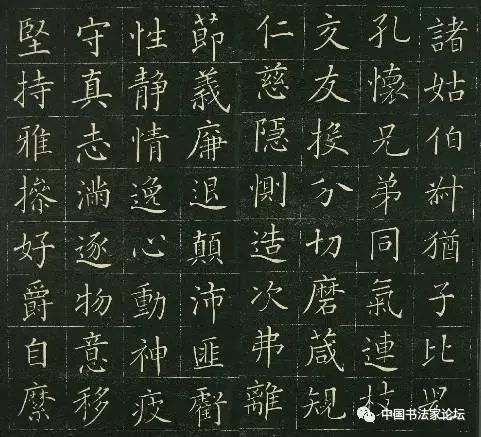 諸姑伯叔猶子比兒
孔懷兄弟同氣連枝
交友投分切磨箴規
仁慈隱惻造次弗離
節義廉退顛沛匪虧
性靜情逸心動神疲
守真志滿逐物意移
堅持雅操好爵自縻
中国书法家论坛